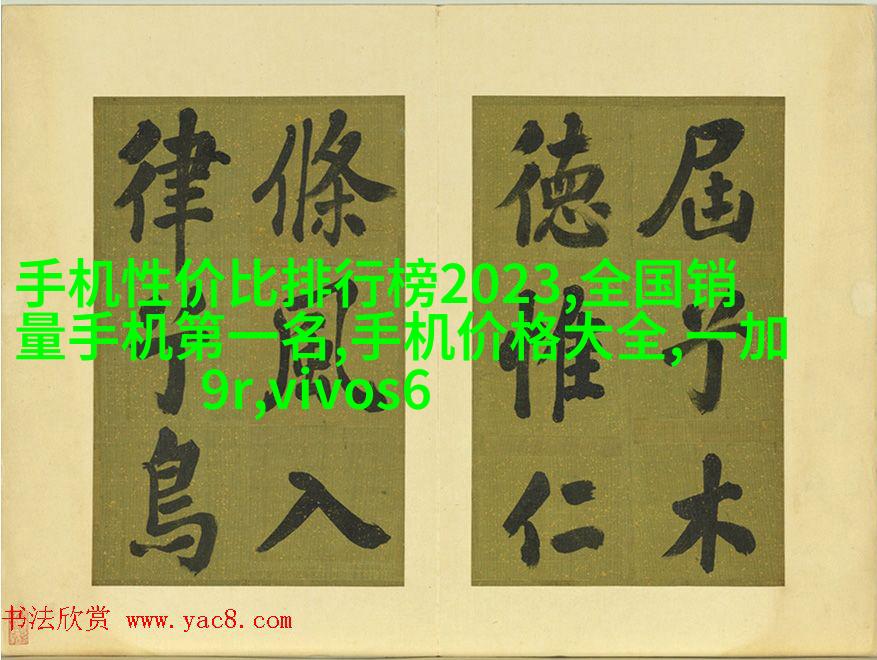 屆于木
德惟仁
條風入
律于鳥
手机性价比排行榜2023,全国销
量手机第一名,手机价格大全,一加
9r,vivos6
书法欣赏 www.yac8.com